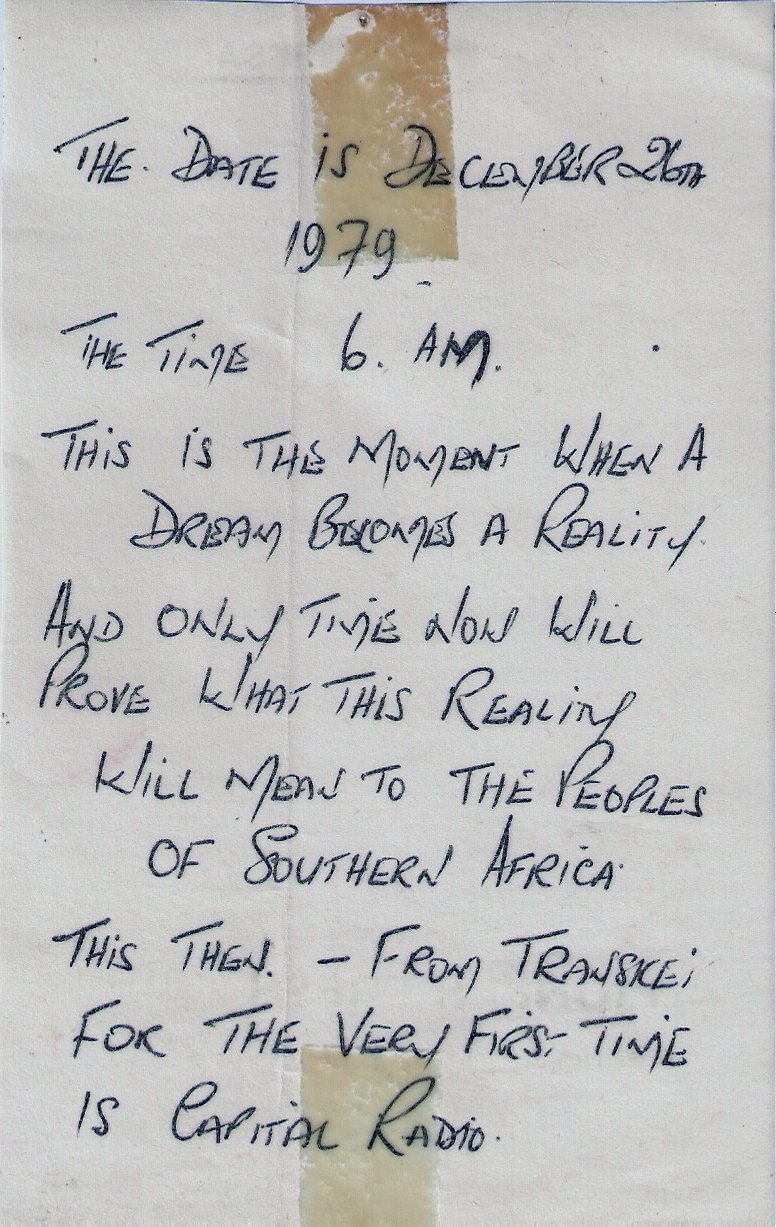 THE. DATE IS DECEMBER 26TH
1979.
THE TIME 6. AM.
THIS IS THE MOMENT WHEN A
DREAM BECOMES A REALITY.
AND ONLY TIME NOW WILL
PROVE WHAT THIS REALITY
WILL MEAN TO THE PEOPLES
OF SOUTHERN AFRICA.
THIS THEN. - FROM TRANSKEI
FOR THE VERY FIRST TIME
IS CAPITAL RADIO.